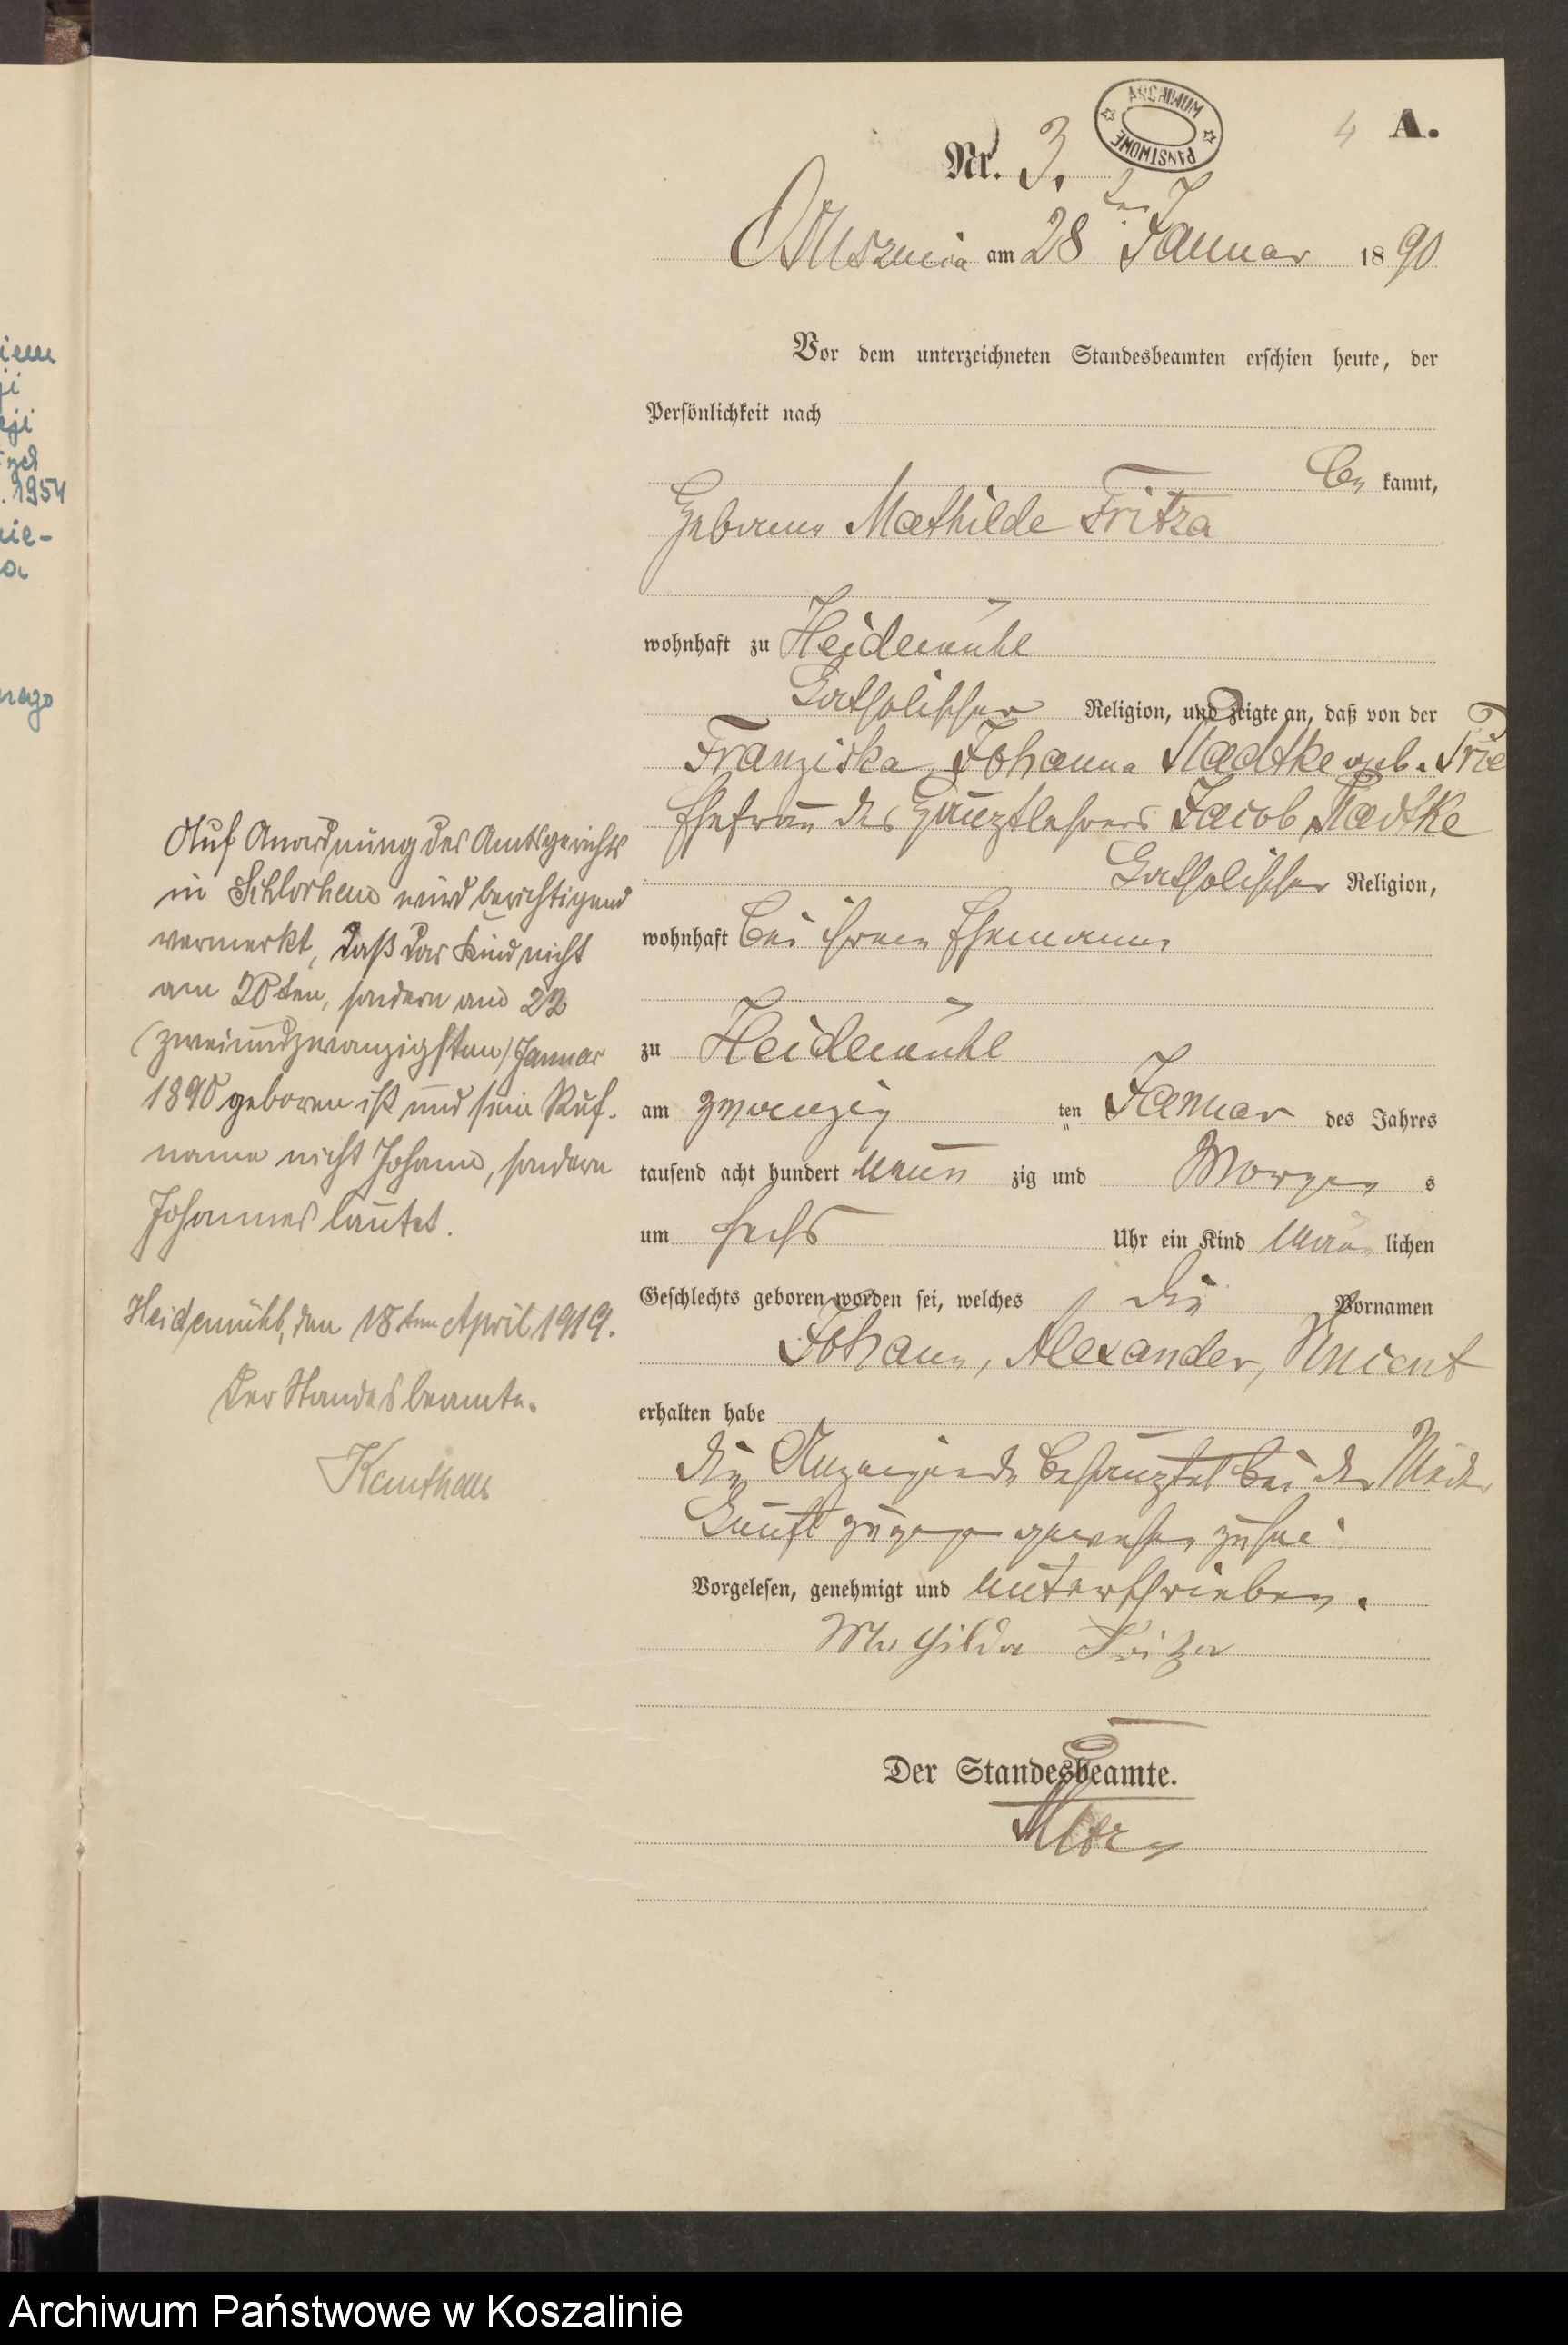 iem
ji
eji
. 1954
nie-
a
nego
ARCHIWUM
PAŃSTWOWE
4 A.
Nr. 3.
am 28 ten Januar 1890
Vor dem unterzeichneten Standesbeamten erschien heute, der
Persönlichkeit nach
be kannt,
Mathilde Fritza
wohnhaft zu Heidemühl
Catholischer Religion, und zeigte an, daß von der
Franziska, Johanna Radtke geb. Frie
Ehefrau des Hauptlehrers Jacob Radtke
Catholischer Religion,
wohnhaft bei ihrem Ehemanne
zu Heidemühl
am zwanzig ten Januar des Jahres
tausend acht hundert neun zig und Morgen s
um sechs Uhr ein Kind männ lichen
Geschlechts geboren worden sei, welches die Vornamen
Johann, Alexander, Vincent
erhalten habe
die Anzeigende behauptet bei der Nieder
kunft zugegen gewesen zu sei
Vorgelesen, genehmigt und unterschrieben.
Mathilda Fritza
Der Standesbeamte.
Auf Anordnung des Amtsgerichts
in Schlochau wird berichtigend
vermerkt, daß das Kind nicht
am 20ten, sondern am 22
(zweiundzwanzigsten) Januar
1890 geboren ist und sein Ruf-
name nicht Johann, sondern
Johannes lautet.
Heidemühl, den 18ten April 1919.
Der Standesbeamte.
Archiwum Państwowe w Koszalinie